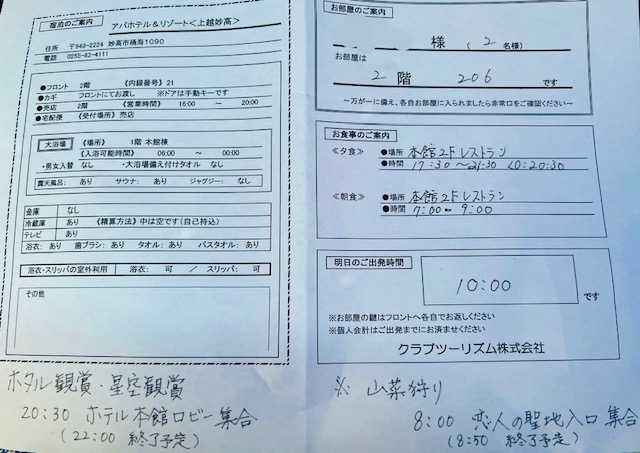 宿泊のご案内
アパホテル&リゾート<上越妙高>
住所 〒949-2224 妙高市桶海1090
電話 0255-82-4111
●フロント 2階 《内線番号》21
●カギ フロントにてお渡し ※ドアは手動キーです
●売店 2階 《営業時間》 16:00 ~ 20:00
●宅配便 《受付場所》 売店
大浴場 《場所》 1階 本館棟
《入浴可能時間》 06:00 ~ 00:00
・男女入替 なし ・大浴場備え付けタオル なし
露天風呂: あり サウナ: あり ジャグジー: なし
金庫 なし
冷蔵庫 あり 《精算方法》中は空です(自己持込)
テレビ あり
浴衣: あり 歯ブラシ: あり タオル: あり バスタオル: あり
浴衣・スリッパの室外利用 浴衣: 可 / スリッパ: 可
その他
ホタル観賞・星空観賞
20:30 ホテル本館ロビー集合
(22:00 終了予定)
お部屋のご案内
様 (2名様)
お部屋は
2階 206 です
~万が一に備え、各自お部屋に入られましたら非常口をご確認ください~
お食事のご案内
≪夕食≫ ●場所 本館2Fレストラン
●時間 17:30~21:30 LO:20:30
≪朝食≫ ●場所 本館2Fレストラン
●時間 7:00~9:00
明日のご出発時間
10:00 です
※お部屋の鍵はフロントへ各自でお返しください
※個人会計はご出発までにお済ませください
クラブツーリズム株式会社
※ 山菜狩り
8:00 恋人の聖地入口集合
(8:50 終了予定)